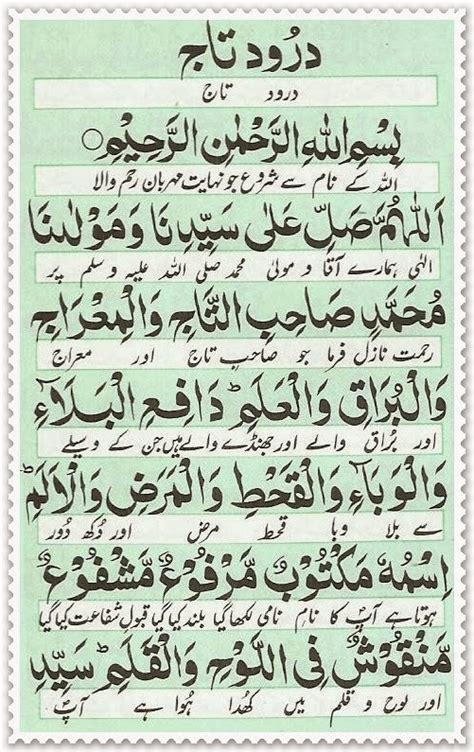 درُود تاج
درود تاج
بِسْمِ اللهِ الرَّحْمٰنِ الرَّحِيْمِ
اللہ کے نام سے شروع جو نہایت مہربان رحم والا
اَللّٰهُمَّ صَلِّ عَلٰى سَيِّدِنَا وَمَوْلٰىنَا
الٰہی ہمارے آقا و مولیٰ محمد صلی اللہ علیہ و سلم پر
مُحَمَّدٍ صَاحِبِ التَّاجِ وَالْمِعْرَاجِ
رحمت نازل فرما جو صاحبِ تاج اور معراج
وَالْبُرَاقِ وَالْعَلَمِ ؕ دَافِعِ الْبَلَآءِ
اور بُراق والے اور جھنڈے والے ہیں جن کے وسیلے
وَالْوَبَآءِ وَالْقَحْطِ وَالْمَرَضِ وَالْاَلَمِ ؕ
سے بلا وبا قحط مرض اور دُکھ دُور
اِسْمُهٗ مَكْتُوْبٌ مَّرْفُوْعٌ مَّشْفُوْعٌ
ہوتا ہے آپ کا نامِ نامی لکھا گیا بلند کیا گیا قبولِ شفاعت کیا گیا
مَّنْقُوْشٌ فِى اللَّوْحِ وَالْقَلَمِ ؕ سَيِّدِ
اور لوح و قلم میں کھدا ہُوا ہے آپؐ